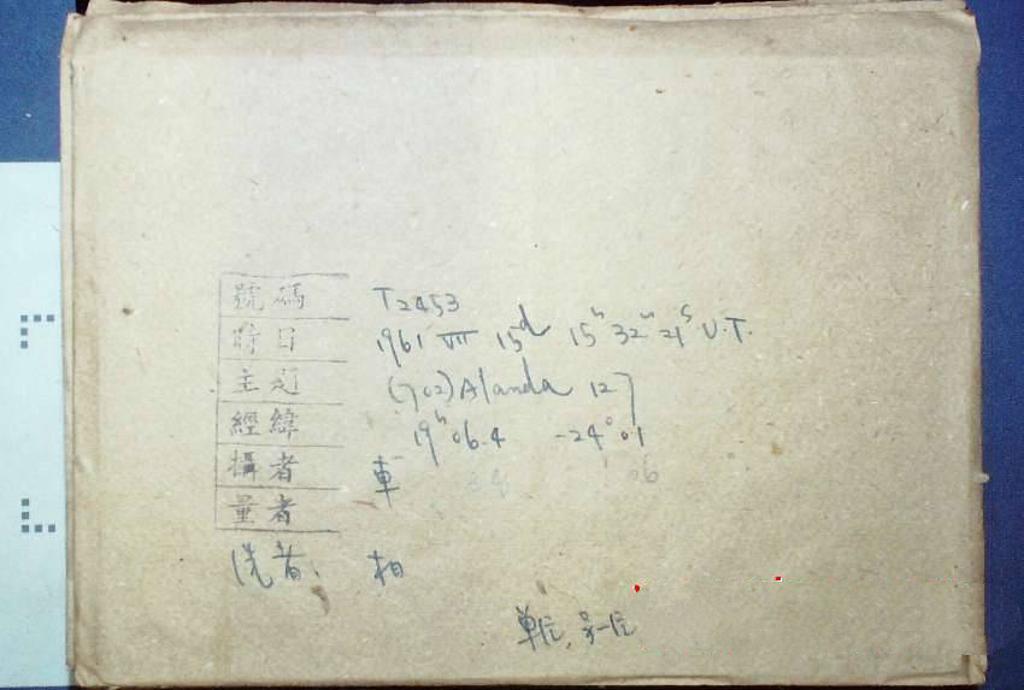 號碼 T2453
時日 1961 VII 15d 15h 32m 21s U.T.
主題 (702) Alanda 127
經緯 19h 06.4 -24° 01
攝者 車
量者
洗者: 柏